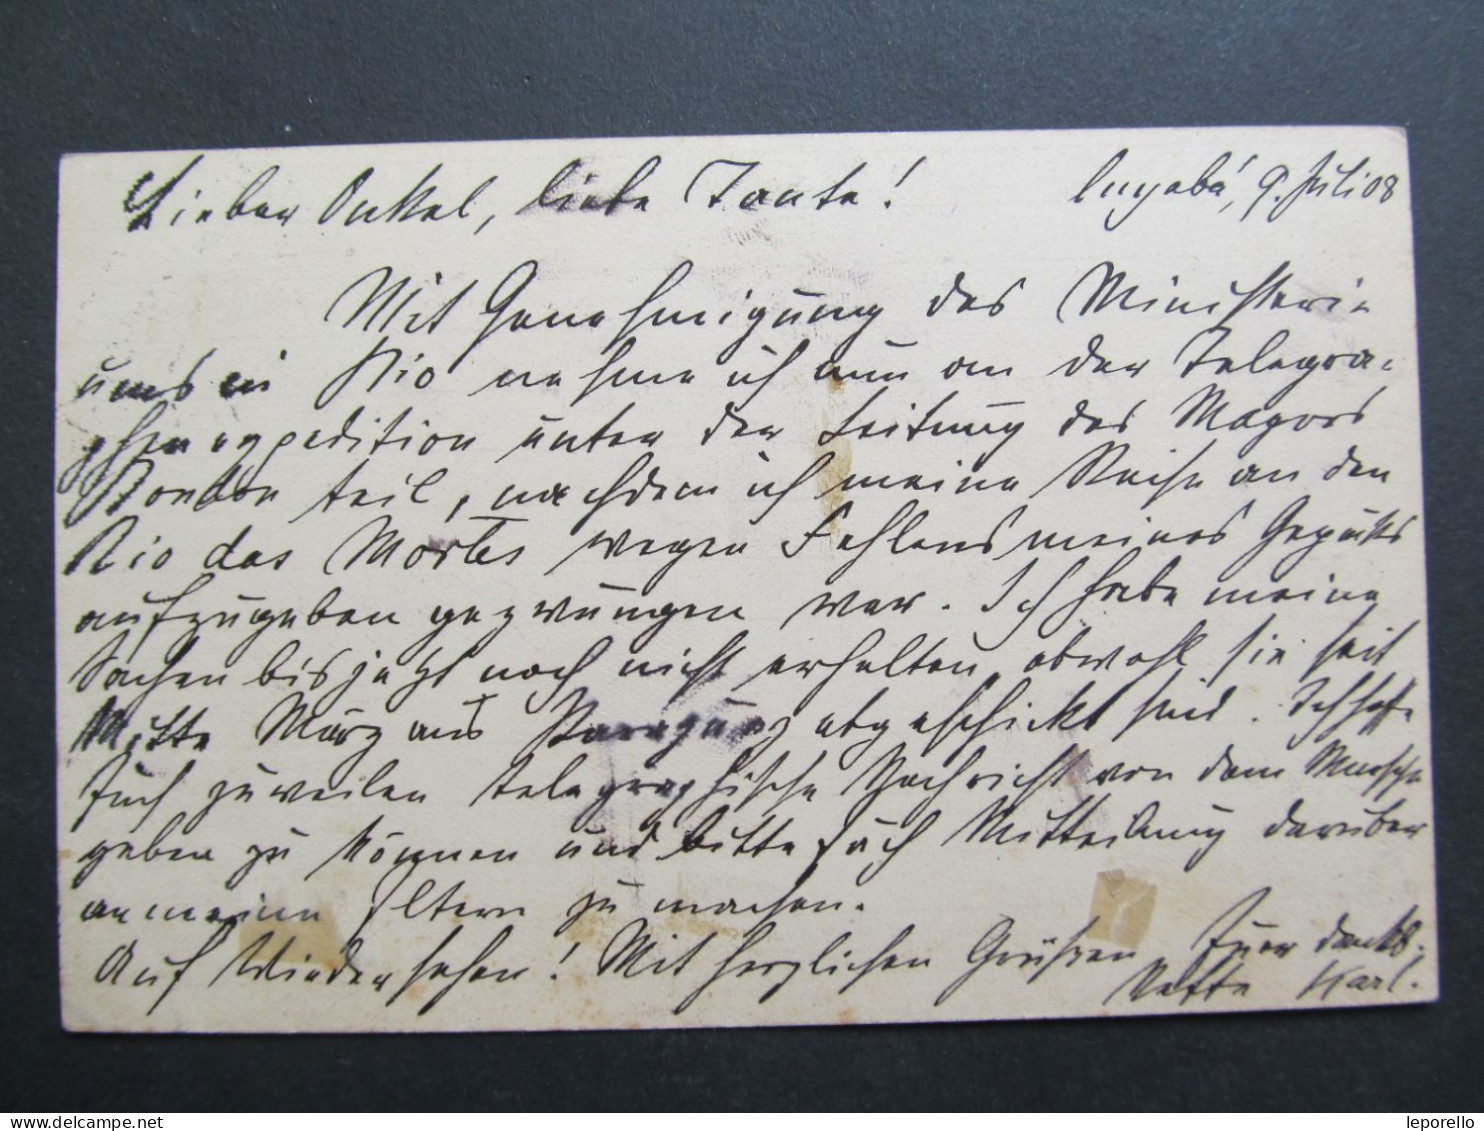 Lieber Onkel, liebe Tante! Cuyabá, 9. Juli 08
Mit Genehmigung des Ministeri-
ums in Rio nehme ich nun an der Telegra-
phenexpedition unter der Leitung des Majors
Rondon teil, nachdem ich meine Reise an den
Rio das Mortes wegen Fehlens meines Gepäcks
aufzugeben gezwungen war. Ich habe meine
Sachen bis jetzt noch nicht erhalten, obwohl sie seit
Mitte März aus Paraguay abgeschickt sind. Ich hoffe
Euch zuweilen telegraphische Nachricht von dem Marsche
geben zu können und bitte Euch Mitteilung darüber
an meine Eltern zu machen.
Auf Wiedersehen! Mit herzlichen Grüßen Euer dankb.
Neffe Karl.
leporello